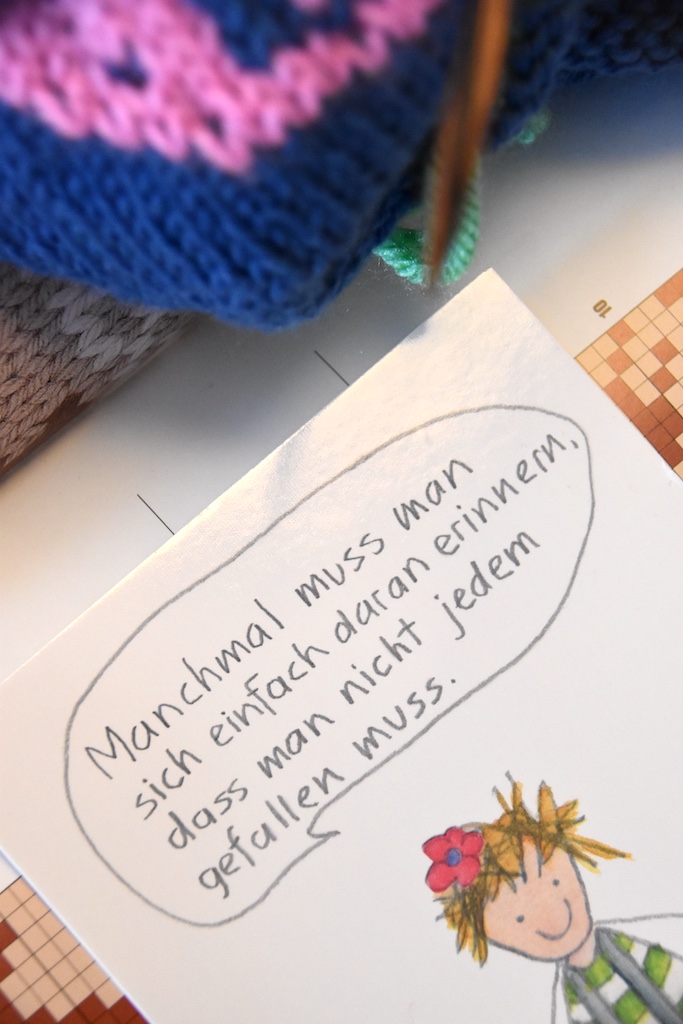 10
Manchmal muss man
sich einfach daran erinnern,
dass man nicht jedem
gefallen muss.